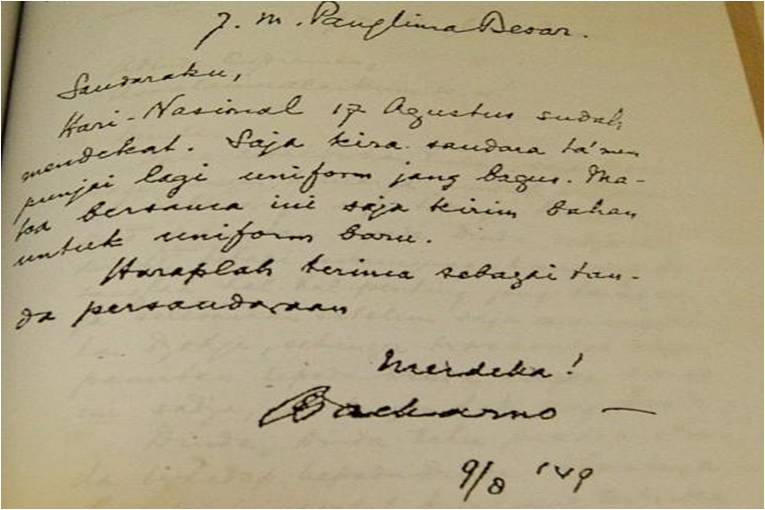 J. M. Panglima Besar.
Saudaraku,
Hari-Nasional 17 Agustus sudah
mendekat. Saja kira saudara ta'mem
punjai lagi uniform jang bagus. Ma-
ka bersama ini saja kirim bahan
untuk uniform baru.
Haraplah terima sebagai tan-
da persaudaraan
Merdeka!
Soekarno —
9/8 '49